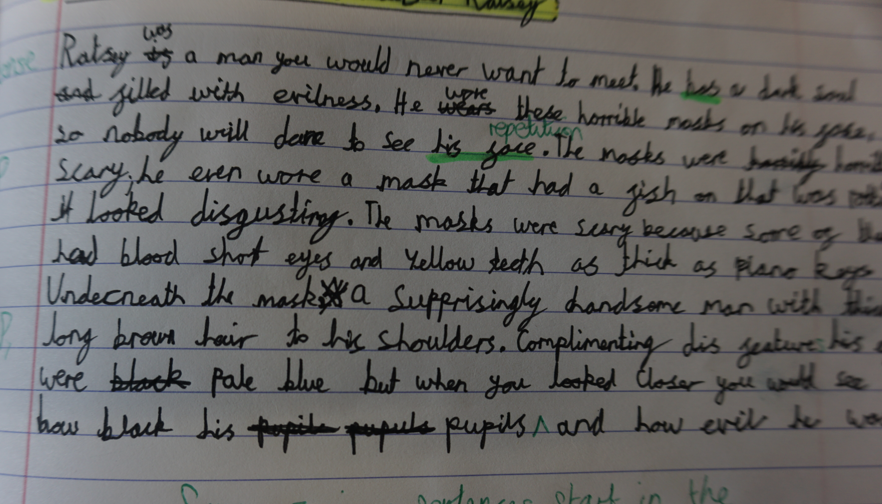 Ratsey
Ratsey was a man you would never want to meet. He has a dark soul
and filled with evilness. He wore wears these horrible masks on his face,
so nobody will dare to see his face. The masks were
repetition
Scary, he even wore a mask that had a fish on that was
it looked disgusting. The masks were scary because some of
had blood shot eyes and yellow teeth as thick as piano keys
Undecneath the mask a supprisingly handsome man with
long brown hair to his shoulders. Complimenting dis feature his
were black pale blue but when you looked closer you would see
how black his pupils and how evil he
sentences start in the